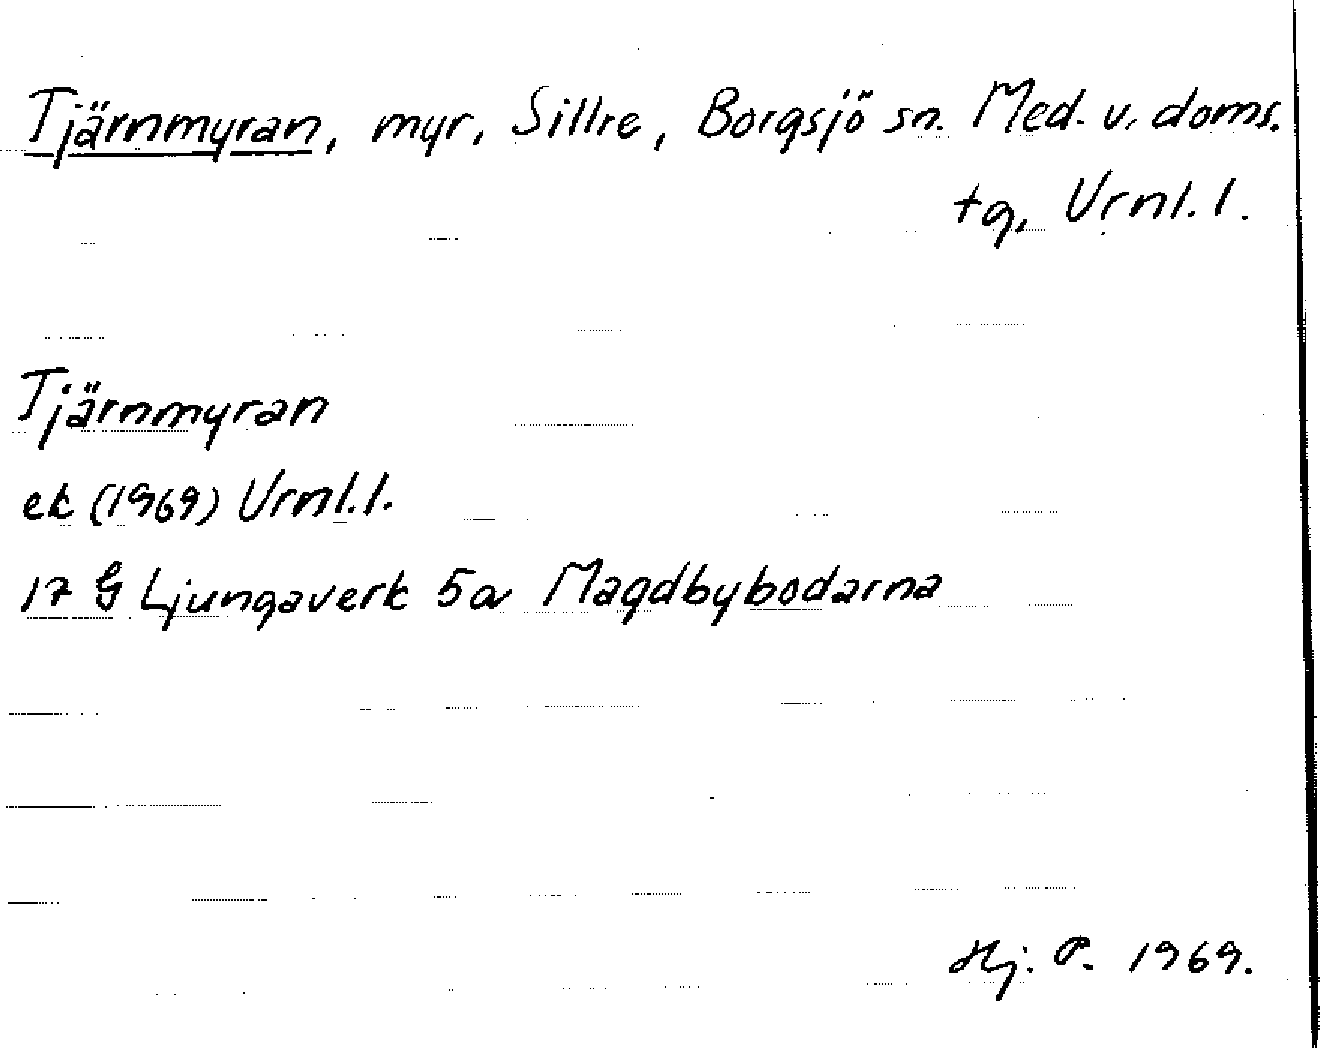 Tjärnmyran, myr, Sillre, Borgsjö sn. Med. v. doms.
tg, Vrnl. l.
Tjärnmyran
ek (1969) Vrnl. l.
17 G Ljungaverk 5a Magdbybodarna
Hj. P. 1969.